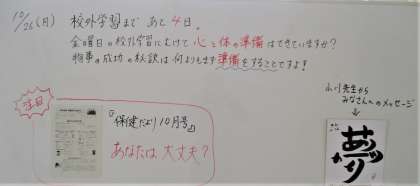 10/26(月) 校外学習まで あと4日。
金曜日の校外学習にむけて心と体の準備はできていますか?
物事の成功の秘訣は何よりもまず準備をすることですよ!
注目
『保健だより10月号』
あなたは大丈夫?
小川先生から
みなさんへのメッセージ
夢